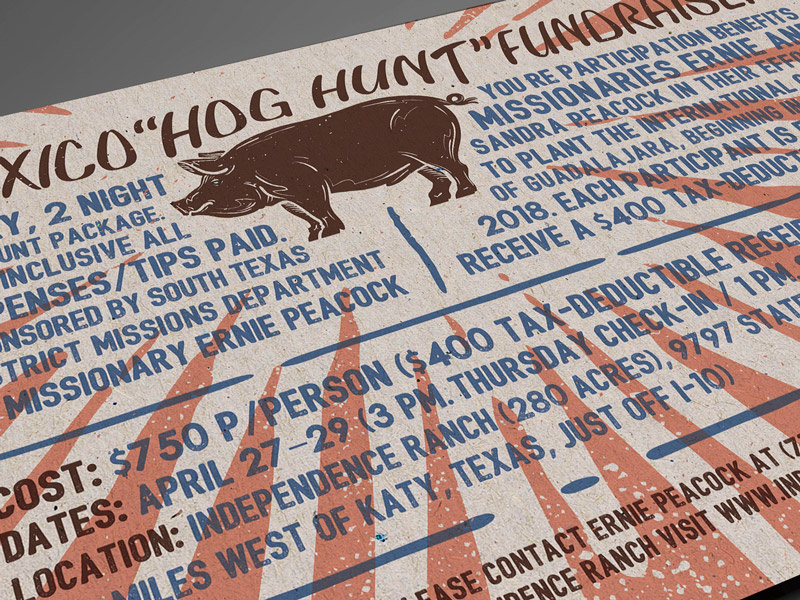 XICO "HOG HUNT" FUNDRAISE
Y, 2 NIGHT
UNT PACKAGE.
INCLUSIVE. ALL
PENSES/TIPS PAID.
NSORED BY SOUTH TEXAS
STRICT MISSIONS DEPARTMENT
MISSIONARY ERNIE PEACOCK
YOU'RE PARTICIPATION BENEFITS
MISSIONARIES ERNIE AN
SANDRA PEACOCK IN THEIR EFFO
TO PLANT THE INTERNATIONAL
OF GUADALAJARA, BEGINNING IN
2018. EACH PARTICIPANT IS
RECEIVE A $400 TAX-DEDUCT
COST: $750 P/PERSON ($400 TAX-DEDUCTIBLE RECEI
DATES: APRIL 27-29 (3 PM. THURSDAY CHECK-IN / 1 PM.
LOCATION: INDEPENDENCE RANCH (280 ACRES), 9797 STATE
MILES WEST OF KATY, TEXAS, JUST OFF I-10)
LEASE CONTACT ERNIE PEACOCK AT (7
DENCE RANCH VISIT WWW.IN